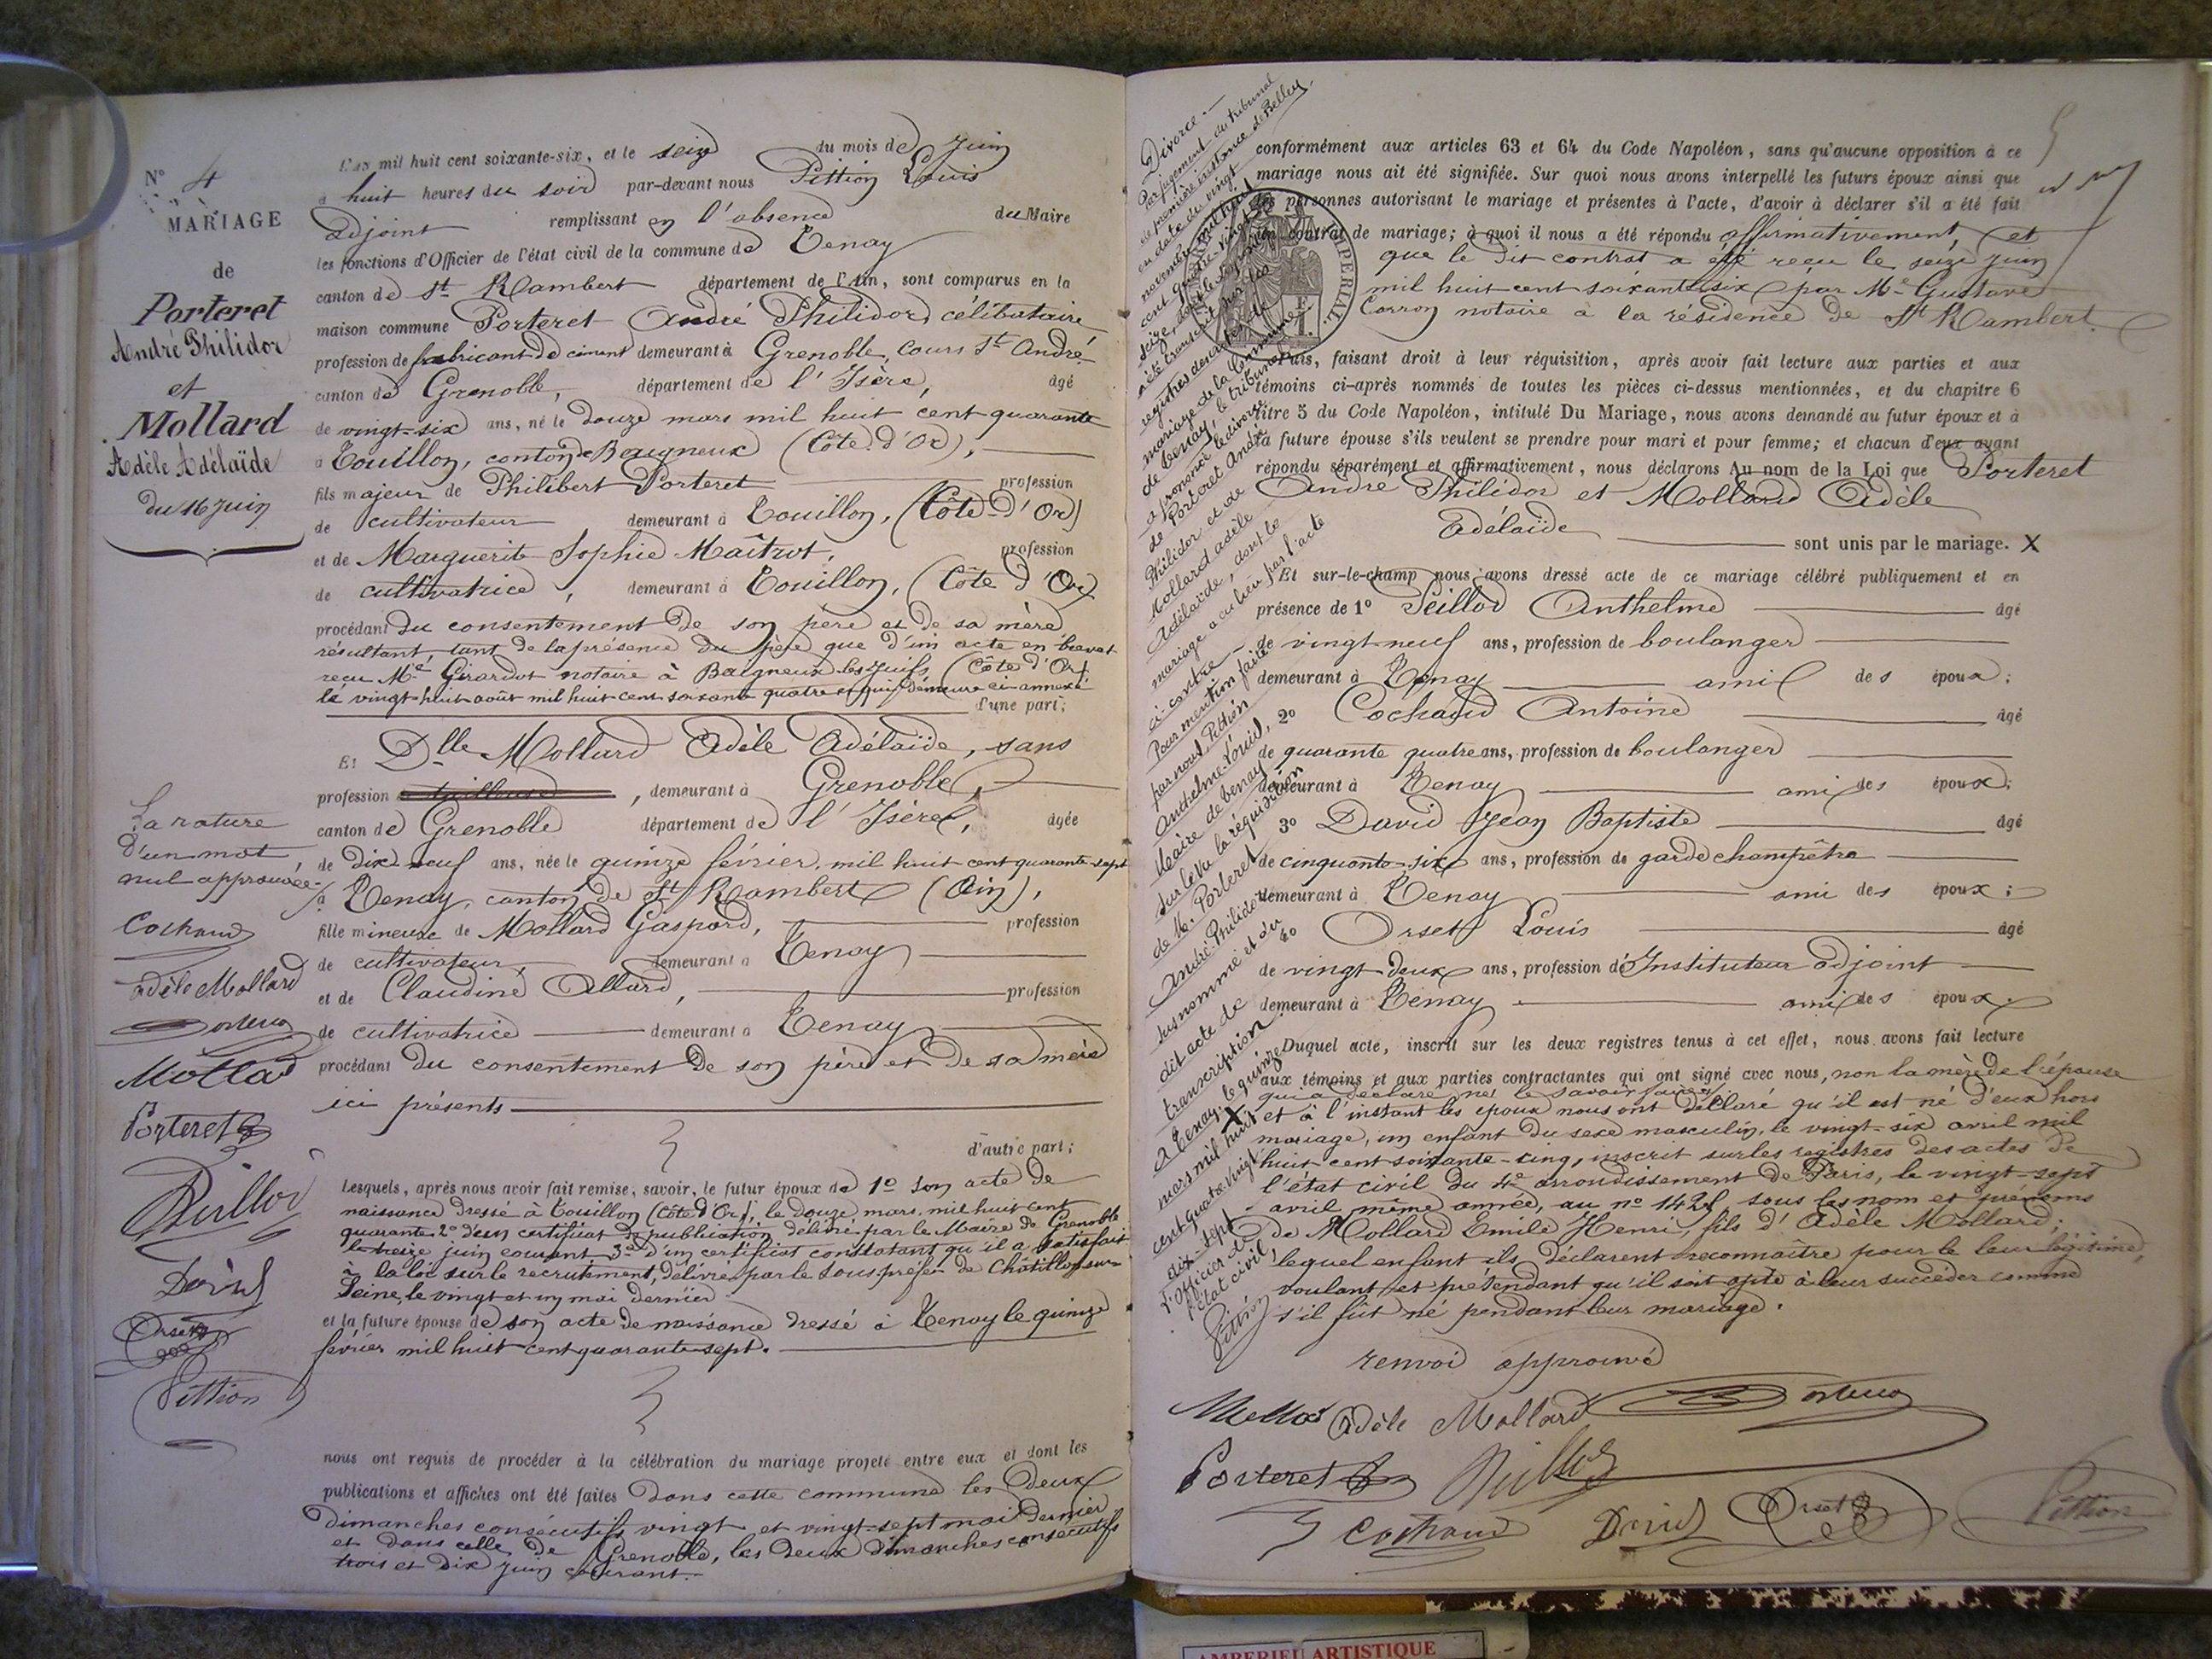 N° 4
MARIAGE
de
Porteret
André Philidor
et
Mollard
Adèle Adélaïde
du 16 juin
L'an mil huit cent soixante-six, et le seize du mois de juin
à huit heures du soir par-devant nous Pittion Louis
adjoint remplissant en l'absence du Maire
les fonctions d'Officier de l'état civil de la commune de Tenay
canton de St Rambert département de l'Ain, sont comparus en la
maison commune Porteret André Philidor, célibataire
profession de fabricant de ciment demeurant à Grenoble, cours St André
canton de Grenoble, département de l'Isère, âgé
de vingt-six ans, né le douze mars mil huit cent quarante
à Touillon, canton de Baigneux (Côte d'Or),
fils majeur de Philibert Porteret profession
de cultivateur, demeurant à Touillon, (Côte d'Or)
et de Marguerite Sophie Maîtrot, profession
de cultivatrice, demeurant à Touillon, (Côte d'Or)
procédant du consentement de son père et de sa mère
résultant, tant de la présence du père que d'un acte en brevet
reçu Me Girardot notaire à Baigneux-les-Juifs (Côte d'Or)
le vingt-huit août mil huit cent soixante quatre et qui demeure ci-annexé
d'une part;
Et Dlle Mollard Adèle Adélaïde, sans
profession , demeurant à Grenoble,
canton de Grenoble département de l'Isère, âgée
de dix-neuf ans, née le quinze février mil huit cent quarante-sept
à Tenay, canton de St Rambert (Ain),
fille mineure de Mollard Gaspard, profession
de cultivateur, demeurant à Tenay
et de Claudine Allard, profession
de cultivatrice demeurant à Tenay
procédant du consentement de son père et de sa mère
ici présents
d'autre part;
Lesquels, après nous avoir fait remise, savoir, le futur époux de 1° son acte de
naissance dressé à Touillon (Côte d'Or), le douze mars mil huit cent
quarante 2° d'un certificat de publication délivré par le Maire de Grenoble
le treize juin courant 3° d'un certificat constatant qu'il a satisfait
à la loi sur le recrutement, délivré par le Sous préfet de Châtillon-sur-
Seine, le vingt et un mai dernier
et la future épouse de son acte de naissance dressé à Tenay le quinze
février mil huit cent quarante-sept.
nous ont requis de procéder à la célébration du mariage projeté entre eux et dont les
publications et affiches ont été faites dans cette commune les deux
dimanches consécutifs vingt et vingt-sept mai dernier
et dans celle de Grenoble, les deux dimanches consécutifs
trois et dix juin courant.
La rature
d'un mot
nul approuvée
Cochaud
Adèle Mollard
Porteret
Mollard
Porteret
Peillod
David
Orset
Pittion
Divorce.
Par jugement du tribunal
de première instance de Belley
en date du vingt
novembre mil huit
cent quatre-vingt
seize,
a été transcrit
registres des actes de
mariage de la Commune
de Tenay, le tribunal
a prononcé le divorce
de Porteret André
Philidor et de
Mollard Adèle
Adélaïde, dont le
mariage a eu lieu par l'acte
ci-contre
Pour mention faite
par nous, Pittion
Anthelme Louis,
Maire de Tenay
sur le vu la réquisition
de M. Porteret
André-Philidor
susnommé et du
dit acte de
transcription
à Tenay, le quinze
mars mil huit
cent quatre-vingt
dix-sept
L'officier de
l'état civil,
Pittion
conformément aux articles 63 et 64 du Code Napoléon, sans qu'aucune opposition à ce
mariage nous ait été signifiée. Sur quoi nous avons interpellé les futurs époux ainsi que
les personnes autorisant le mariage et présentes à l'acte, d'avoir à déclarer s'il a été fait
un contrat de mariage; à quoi il nous a été répondu affirmativement, et
que le dit contrat a été reçu le seize juin
mil huit cent soixante six par Me Gustave
Carron notaire à la résidence de St Rambert.
Puis, faisant droit à leur réquisition, après avoir fait lecture aux parties et aux
témoins ci-après nommés de toutes les pièces ci-dessus mentionnées, et du chapitre 6
titre 5 du Code Napoléon, intitulé Du Mariage, nous avons demandé au futur époux et à
la future épouse s'ils veulent se prendre pour mari et pour femme; et chacun d'eux ayant
répondu séparément et affirmativement, nous déclarons Au nom de la Loi que Porteret
André Philidor et Mollard Adèle
Adélaïde sont unis par le mariage. X
Et sur-le-champ nous avons dressé acte de ce mariage célébré publiquement et en
présence de 1° Peillod Anthelme âgé
de vingt neuf ans, profession de boulanger
demeurant à Tenay ami des époux;
2° Cochaud Antoine âgé
de quarante quatre ans, profession de boulanger
demeurant à Tenay ami des époux;
3° David Jean Baptiste âgé
de cinquante-six ans, profession de garde champêtre
demeurant à Tenay ami des époux;
4° Orset Louis âgé
de vingt-deux ans, profession d'Instituteur adjoint
demeurant à Tenay ami des époux.
Duquel acte, inscrit sur les deux registres tenus à cet effet, nous avons fait lecture
aux témoins et aux parties contractantes qui ont signé avec nous, non la mère de l'épouse
qui a déclaré ne le savoir faire
X et à l'instant les époux nous ont déclaré qu'il est né d'eux hors
mariage, un enfant du sexe masculin, le vingt-six avril mil
huit cent soixante-cinq, inscrit sur les registres des actes de
l'état civil du 4e arrondissement de Paris, le vingt-sept
avril même année, au n° 1428, sous les nom et prénoms
de Mollard Emile Henri, fils d'Adèle Mollard;
lequel enfant ils déclarent reconnaître pour le leur légitime,
voulant et prétendant qu'il soit apte à leur succéder comme
s'il fût né pendant leur mariage.
renvoi approuvé
Mollard Adèle Mollard Porteret
Porteret Peillod
Cochaud David Orset Pittion
AMBERIEU ARTISTIQUE